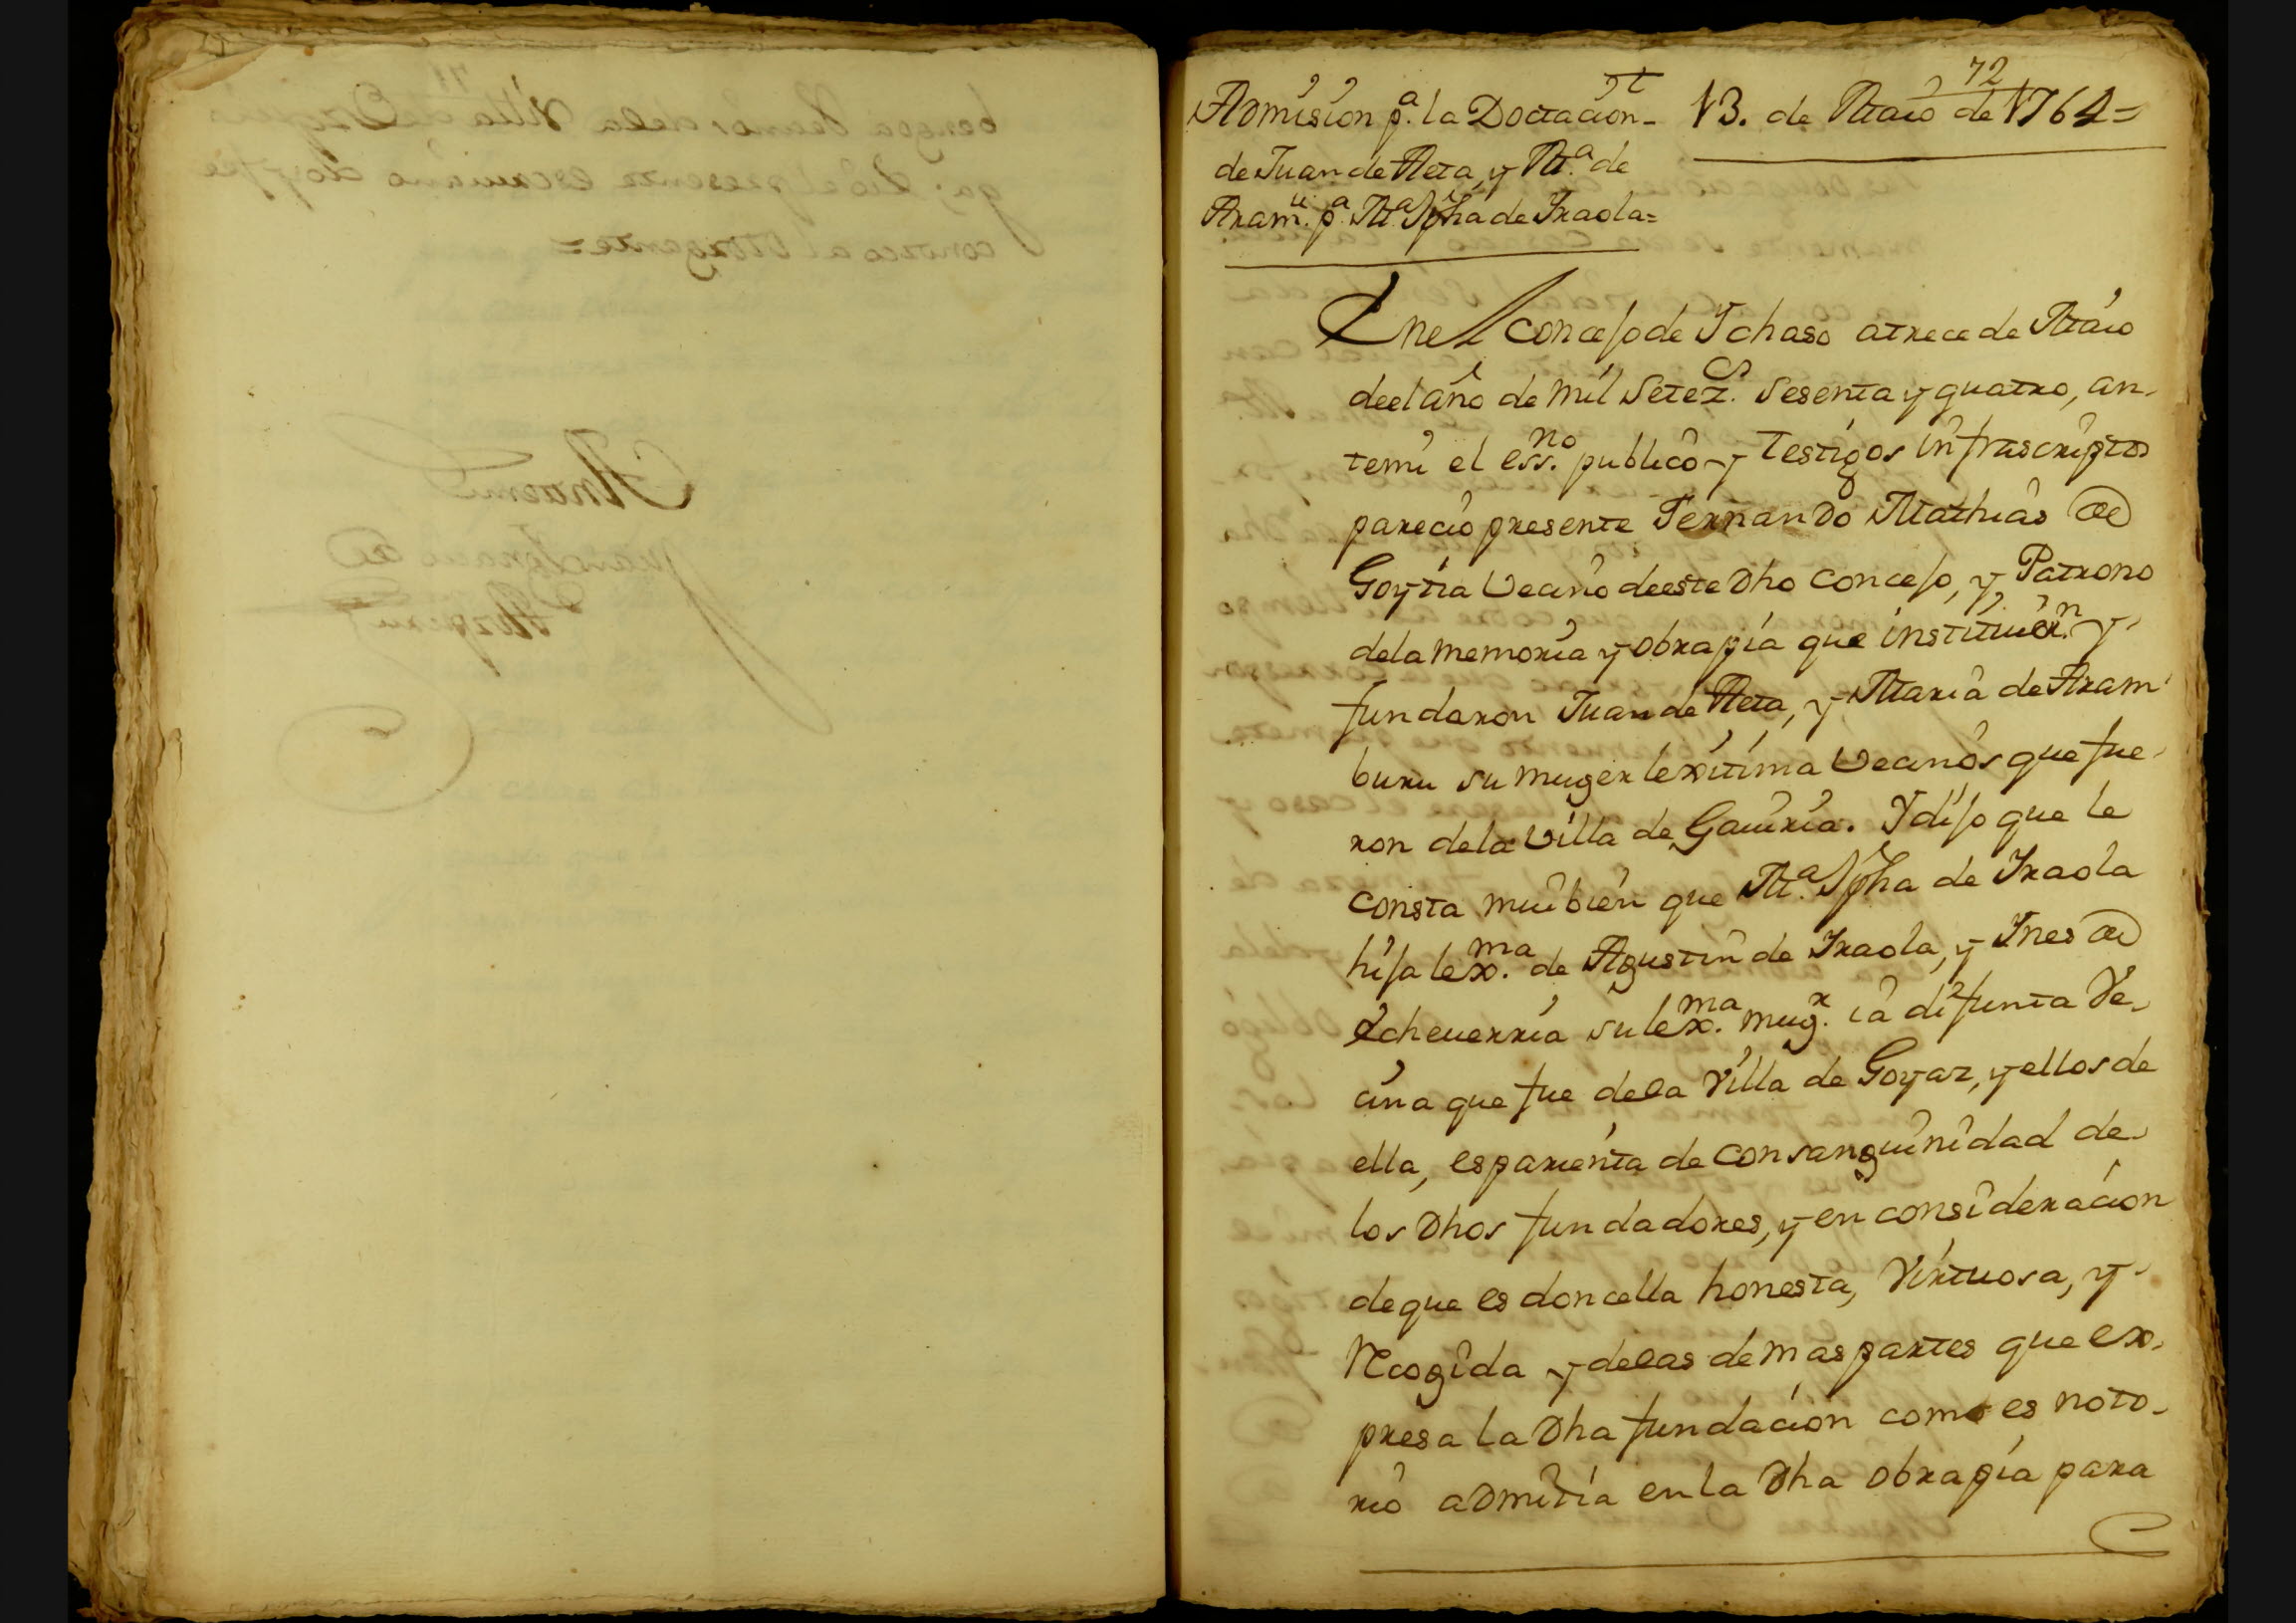 72
Admision p.ª la Dotacion
de Juan de Aeta, y M.ª de
Aram.u p.ª M.ª Jpha de Iraola=
13. de Maio de 1764=
En el Concejo de Ichaso a trece de Maio
de el año de mil setez.s sesenta y quatro, an-
temi el ess.no publico y testigos infrascriptos
parecio presente Fernando Mathias de
Goytia Vecino de este dho Concejo, y Patrono
de la memoria y obrapia que instituieron y
fundaron Juan de Aeta, y Maria de Aram
buru su muger lexitima Vecinos que fue-
ron de la Villa de Gaviria. Y dijo que le
consta mui bien que M.ª Jpha de Iraola
hija lex.ma de Agustin de Iraola, y Ines de
Echeuerria su lex.ma mug.r ia difunta Ve-
cina que fue de la Villa de Goyaz, y ellos de
ella, es parienta de consanguinidad de
los dhos fundadores, y en consideracion
de que es doncella honesta, Virtuosa, y
Recogida y de las demas partes que ex-
presa la dha fundacion como es noto-
rio admitia en la dha obrapia para